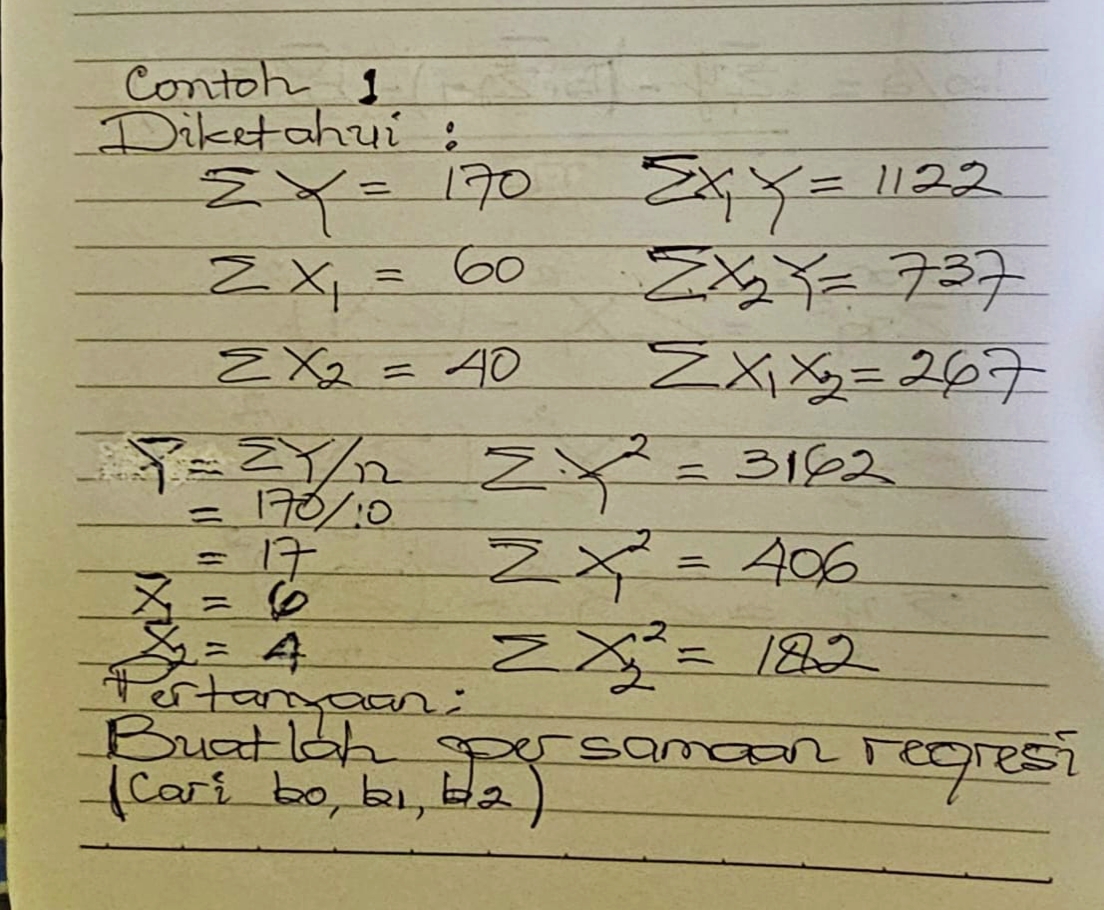 Contoh 1
Diketahui :
ΣY = 170 ΣX₁Y = 1122
ΣX₁ = 60 ΣX₂Y = 737
ΣX₂ = 40 ΣX₁X₂ = 267
Ȳ = ΣY/n ΣY² = 3162
= 170/10
= 17 ΣX₁² = 406
X̄₁ = 6
X̄₂ = 4 ΣX₂² = 182
Pertanyaan :
Buatlah persamaan regresi
(Cari b0, b1, b2)